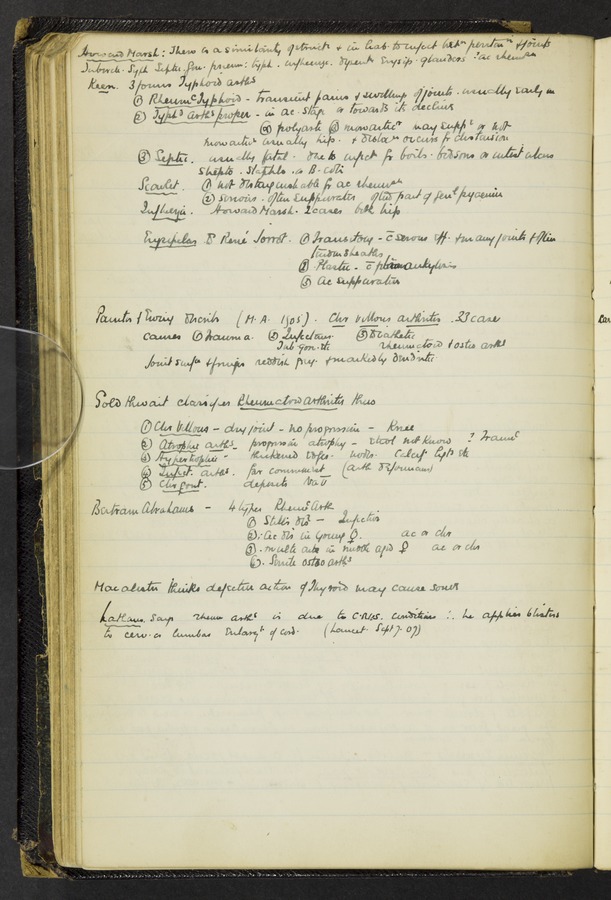 Howard Marsh: There is a similarity of struct. & in liab. to infect betn periton & joints
Tubercle. Syph. Septic. Gon. pneum: typh. influenza. dysent Erysip. glanders ? ac rheum
Keen. 3 forms Typhoid arths
① Rheumc Typhoid - transient pains & swelling of joints. usually early in
② Typhd arths proper - in ac. stage or towards its decline
ⓐ polyartic ⓑ monoartic may supp or not
monoartic usually hip. & dislocn occurs fr distension
③ Septic. usually fatal. due to infect fr boils. bedsores or intest ulcers
Strepto. Staphlo. or B. coli
Scarlet. ① not distinguishable fr ac rheum
② serous. often suppurates often part of genl pyaemia
Influenza. Howard Marsh. 2 cases both hip
Erysipelas Dr René Sorrot. ① Transitory - c̄ serous eff. & many joints & often
tendon sheaths
② Plastic - c̄ ankylosis
③ ac suppurative
Painter & Erving describe (M. A. 1905). Chr Villous arthritis. 33 case
causes ① Trauma. ② Infectious ③ Diathetic
Tub gon. etc rheumatoid & osteo arths
Joint surfs & fringes reddish grey. & markedly dendritic
Goldthwait classifies Rheumatoid arthritis thus
① Chr Villous - dry joint - no progression - Knee
② Atrophic arths. progressive atrophy - etiol not know ? Traume
③ Hypertrophic " - thickened edges. nodes. Calcif ligts etc
④ Infect. arths. far commonest (arth deformans)
⑤ Chr gout. deposits NaU
Bertram Abrahams - 4 types Rheumc Arth
① Stills dis - Infective
②. ac dis in young ♀. ac or chr
③. multe arts in middle aged ♀ ac or chr
④. Senile osteo arths
Macalister thinks defective action of Thyroid may cause some
Latham. says rheum arths is due to C.N.S. conditions ∴ he applies blisters
to cerv. or lumbar enlargt of cord. (Lancet. Sept 7. 07)